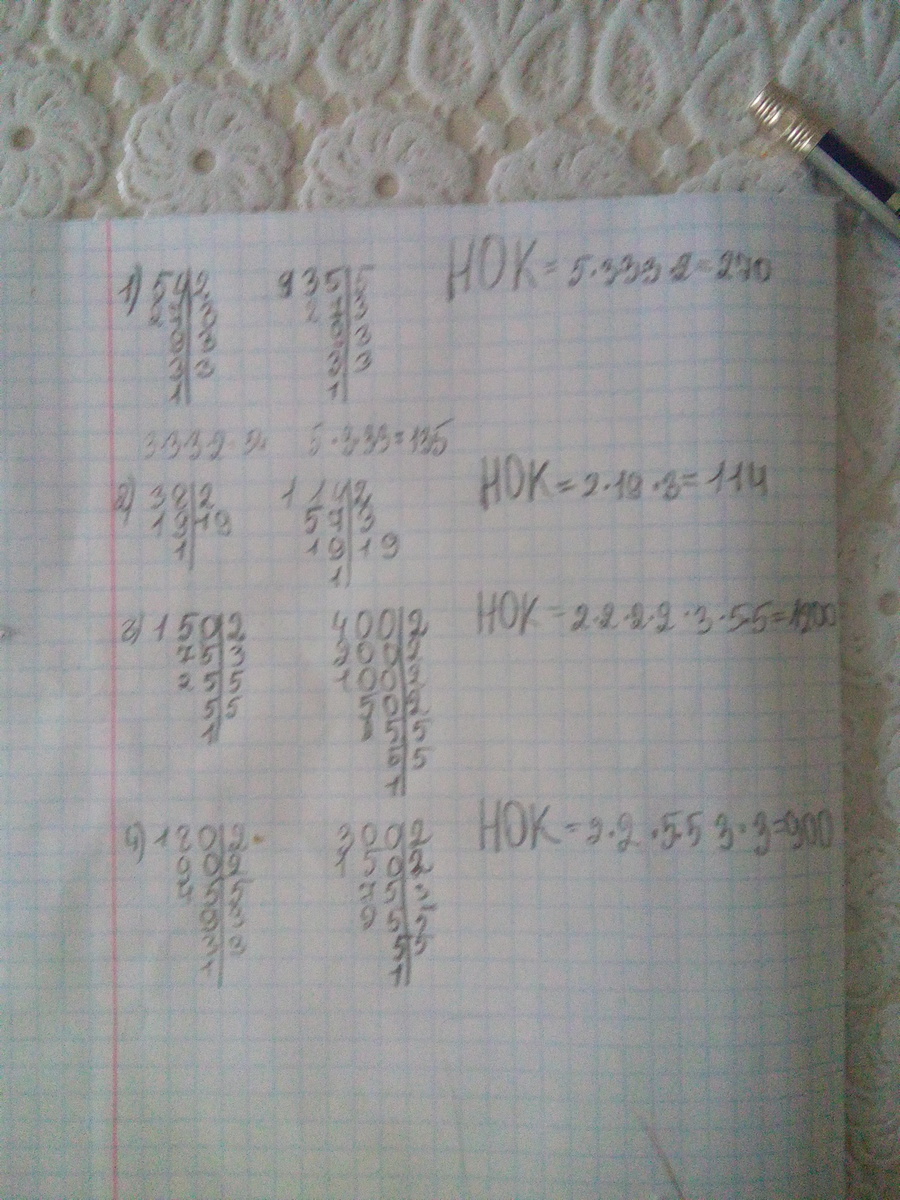 1) 54 2 135 5 НОК = 5·3 3 3·2 = 270
27 3 27 3
9 3 9 3
3 3 3 3
1 1
3 3 3 2 5·3·3 3 = 135
2) 38 2 114 2 НОК = 2·19·3 = 114
19 19 57 3
1 19 19
1
3) 150 2 400 2 НОК = 2·2·2·2·3·5·5 = 1200
75 3 200 2
25 5 100 2
5 5 50 2
1 25 5
5 5
1
180 2 300 2 НОК = 2·2·5 5 3·3 = 900
90 2 150 2
45 75
25
5
1 1